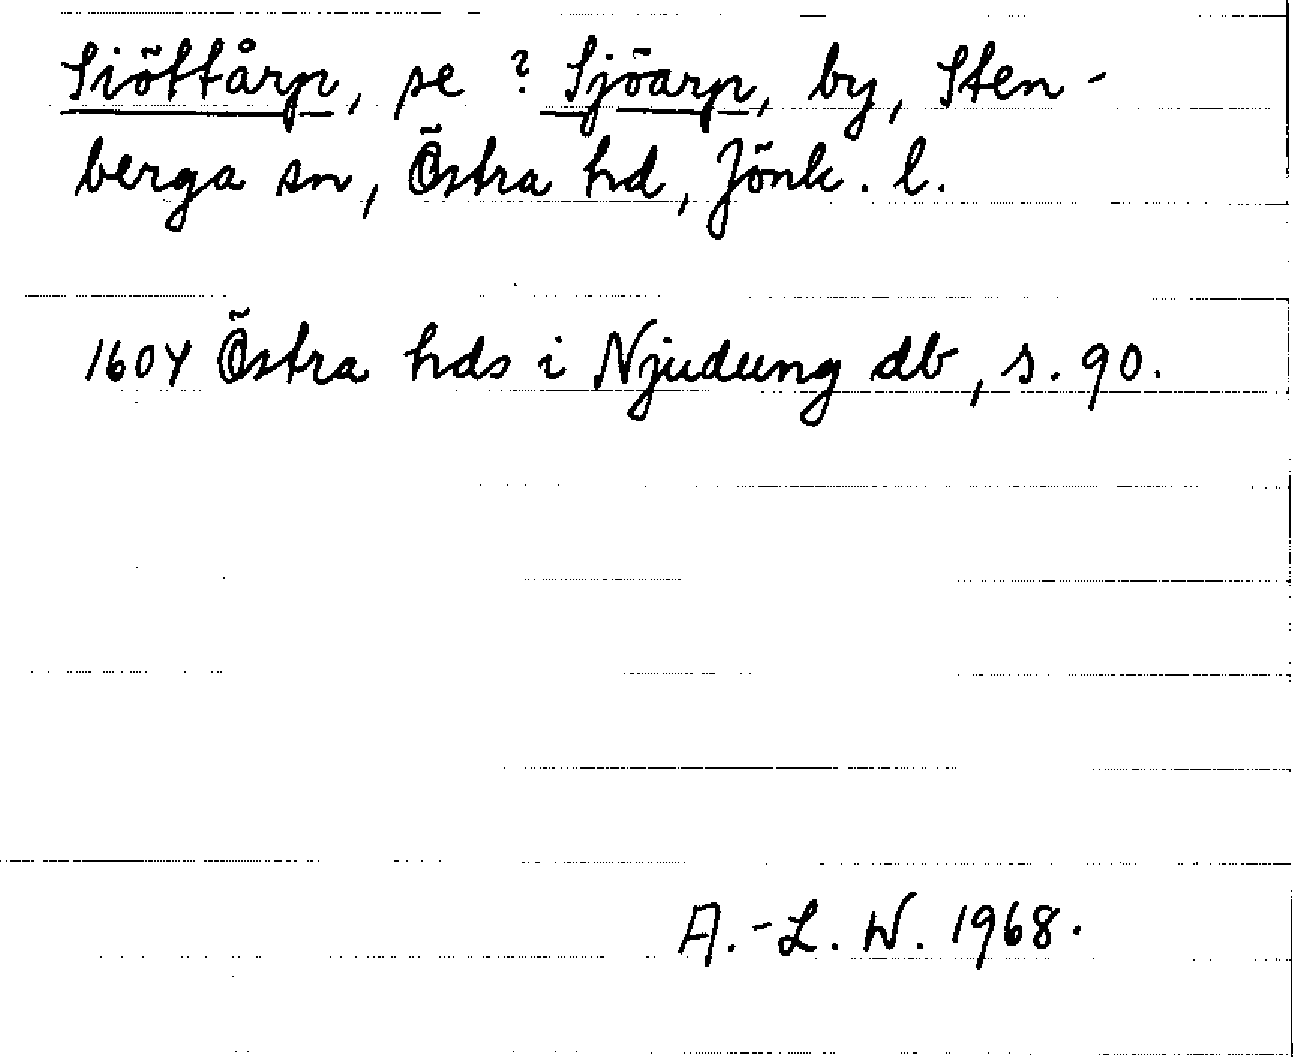 Siöttårp, se ? Sjöarp, by, Sten-
berga sn, Östra hd, Jönk. l.
1604 Östra hds i Njudung db, s. 90.
A.-L. W. 1968.